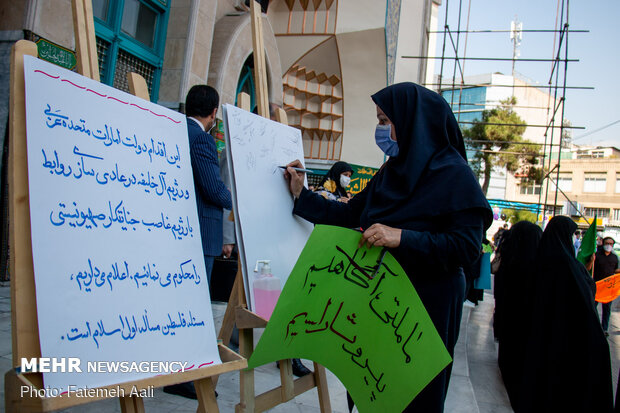 این اقدام دولت امارات متحده عربی
و رژیم آل خلیفه در عادی سازی روابط
با رژیم غاصب جنایتکار صهیونیستی
را محکوم می نمائیم. اعلام می داریم،
مسئله فلسطین مسأله اول اسلام است.
ما ملتی آگاهیم
پیرو ثاراللهیم
MEHR NEWSAGENCY
Photo: Fatemeh Aali